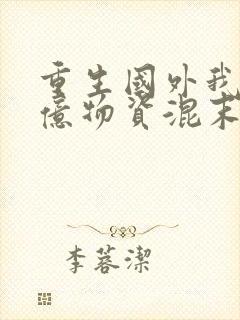 重生國外我
億物資混末
李蓉潔